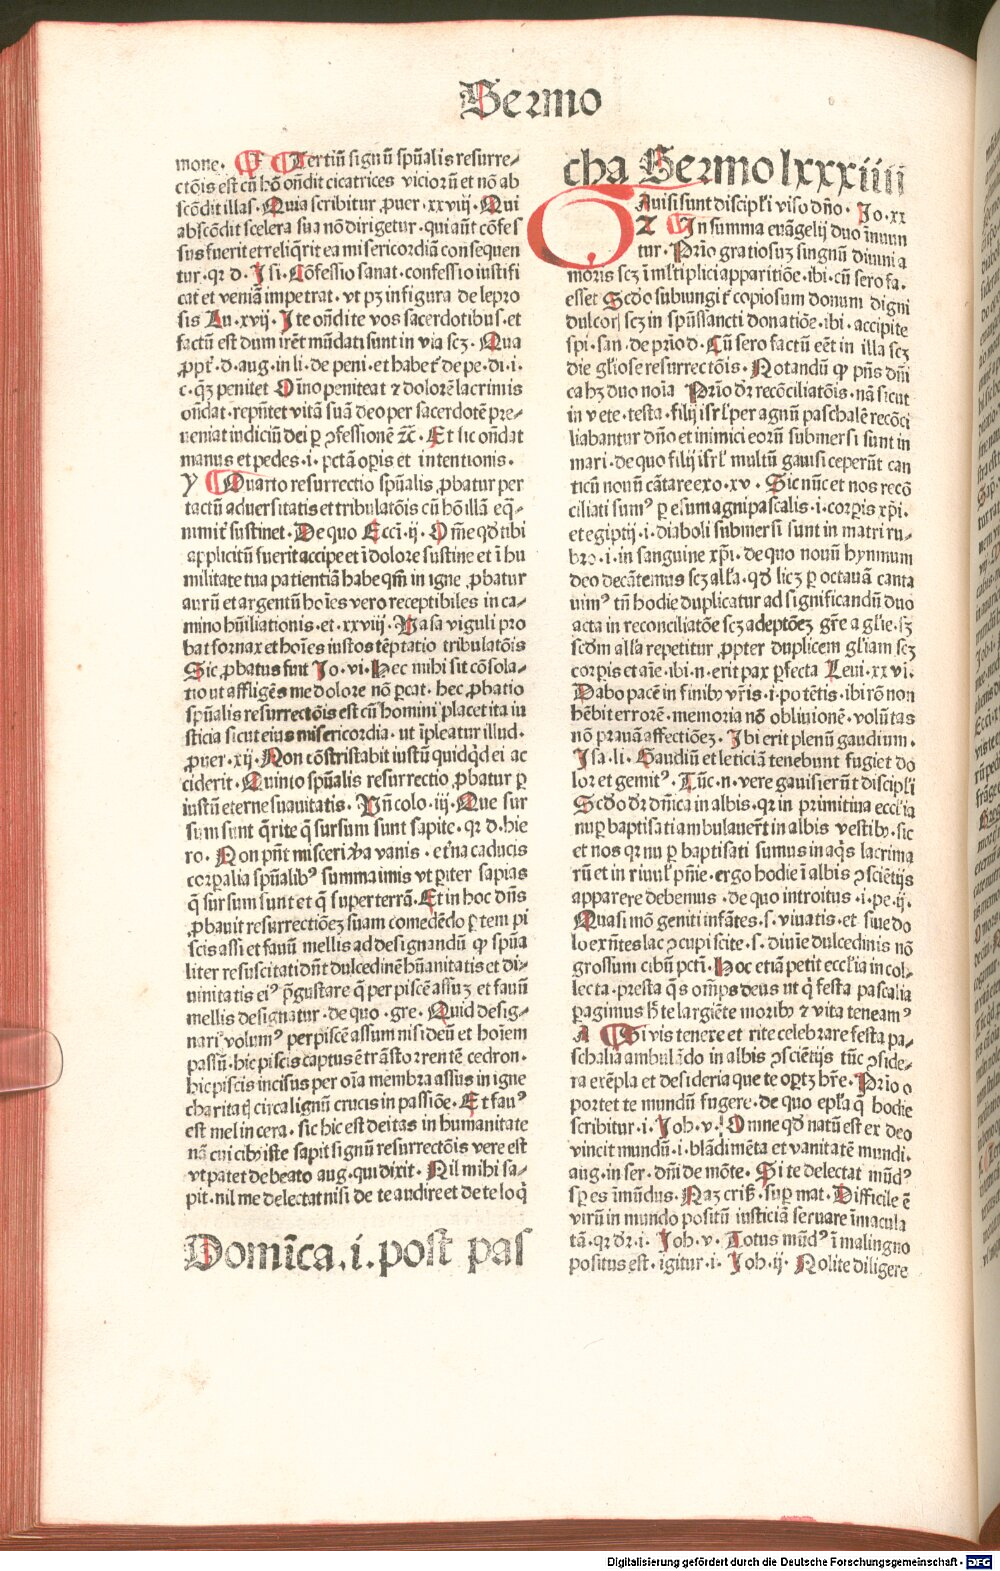 Sermo
mone. X Tertiū signū spūalis resurre⸗
ctōis est cū hō oñdit cicatrices viciorū et nō ab
scōdit illas. Quia scribitur ꝓuer. xxviij. Qui
abscōdit scelera sua nō dirigetur. qui aūt cōfes
sus fuerit et reliq̄rit ea misericordiā consequen
tur. qꝛ d. Isi. Cōfessio sanat. confessio iustifi
cat et veniā impetrat. vt pꝫ in figura de lepro
sis Lu. xvij. Ite oñdite vos sacerdotibus. et
factū est dum irēt mūdati sunt in via scꝫ. Qua
ꝓpt̄. d. aug. in li. de peni. et habet̄ de pe. di. i.
c. qꝫ penitet Oīno peniteat ⁊ dolorē lacrimis
oñdat. rep̄ntet vitā suā deo per sacerdotē pre⸗
ueniat iudiciū dei ꝑ ꝯfessionē ⁊c̄. Et sic oñdat
manus et pedes. i. pctā oꝑis et intentionis.
Y Quarto resurrectio spūalis ꝓbatur per
tactū aduersitatis et tribulatōis cū hō illā eq̄⸗
nimit̄ sustinet. De quo Ecci. ij. Om̄e qđ tibi
applicitū fuerit accipe et ī dolore sustine et ī hu
militate tua patientiā habe qm̄ in igne ꝓbatur
aurū et argentū hoīes vero receptibiles in ca⸗
mino hūiliationis. et. xxviij. Uasa viguli pro
bat fornax et hoīes iustos tēptatio tribulatōis
Sic ꝓbatus fuit Jo. vi. Hec mihi sit cōsola⸗
tio ut affligēs me dolore nō ꝑcat. hec ꝓbatio
spūalis resurrectōis est cū homini placet ita iu
sticia sicut eius misericordia. ut īpleatur illud.
ꝓuer. xij. Non cōstristabit iustū quidqđ ei ac
ciderit. Quinto spūalis resurrectio ꝓbatur ꝑ
iustū eterne suauitatis. Un̄ colo. iij. Que sur
sum sunt q̄rite q̄ sursum sunt sapite. qꝛ d. hie
ro. Non pn̄t misceri v̄ba vanis. et̄na caducis
corꝑalia spūalibꝰ summa imis vt ꝑiter sapias
q̄ sursum sunt et q̄ super terrā. Et in hoc dn̄s
ꝓbauit resurrectiōeꝫ suam comedēdo ꝑtem pi
scis assi et fauū mellis ad designandū ꝙ spūa
liter resuscitati dn̄t dulcedinē hūanitatis et di⸗
uinitatis eiꝰ p̄gustare q̄ per piscē assuꝫ et fauū
mellis designatur. de quo. gre. Quid desig⸗
nari volumꝰ per piscē assum nisi deū et hoīem
passū. hic piscis captus ē trāsto rrentē cedron.
hic piscis incisus per oīa membra assus in igne
charitatꝭ circa lignū crucis in passiōe. Et fauꝰ
est mel in cera. sic hic est deitas in humanitate
nā cui cibꝰ iste sapit signū resurrectōis vere est
vt patet de beato aug. qui dixit. Nil mihi sa⸗
pit. nil me delectat nisi de te audire et de te loq̄
Domīca. i. post pas
cha Sermo lxxxiiii
Gauisi sunt discipl̓i viso dn̄o. Jo. xx
Z In summa euāgelij duo inuun
tur. Prīo gratiosuꝫ singnū diuini a
moris scꝫ ī ml̓tiplici apparitiōe. ibi. cū sero fa.
esset Scd̓o subiungit̄ copiosum donum digni
dulcorꝭ scꝫ in spūssancti donatiōe. ibi. accipite
spi. san. de prīo d. Cū sero factū eēt in illa scꝫ
die gl̓iose resurrectōis. Notandū ꝙ pn̄s dn̄i
ca hꝫ duo noīa Prīo dꝛ recōciliatōis. nā sicut
in vete. testa. filij isrl̓ per agnū paschalē recōci
liabantur dn̄o et inimici eorū submersi sunt in
mari. de quo filij isrl̓ multū gauisi ceperūt can
ticū nouū cātare exo. xv. Sic nūc et nos recō
ciliati sumꝰ ꝑ esum agni pascalis. i. corꝑis xp̄i.
et egiptij. i. diaboli submersi sunt in mari ru⸗
bro. i. in sanguine xp̄i. de quo nouū hymnum
deo decātemus scꝫ all̓a. qđ licꝫ ꝑ octauā canta
uimꝰ tn̄ hodie duplicatur ad significandū duo
acta in reconciliatōe scꝫ adeptōeꝫ gr̄e a gl̓ie. sꝫ
scd̓m all̓a repetitur ꝓpter duplicem gl̓iam scꝫ
corꝑis et aīe. ibi. n. erit pax ꝑfecta Leui. xxvi.
Dabo pacē in finibꝰ vr̄is. i. potētis. ibi rō non
hēbit errorē. memoria nō obliuionē. volūtas
nō prauā affectiōeꝫ. Ibi erit plenū gaudium.
Isa. li. Gaudiū et leticiā tenebunt fugiet do
lor et gemitꝰ. Tūc. n. vere gauisi erūt discipl̓i
Scd̓o dꝛ dn̄ica in albis. qꝛ in primitiua eccl̓ia
nuꝑ baptisati ambulauer̄t in albis vestibꝰ. sic
et nos qꝛ nuꝑ baptisati sumus in aq̄s lacrima
rū et in riuul̓ pn̄ie. ergo hodie ī albis ꝯsciētijs
apparere debemus. de quo introitus. i. pe. ij.
Quasi mō geniti infātes. s. viuatis. et sine do
lo exn̄tes lac ꝯcupiscite. s. diuīe dulcedinis nō
grossum cibū pctī. Hoc etiā petit eccl̓ia in col⸗
lecta. presta q̄s om̄ps deus ut q̄ festa pascalia
ꝑagimus h̓ te largiēte moribꝰ ⁊ vita teneamꝰ
A Si vis tenere et rite celebrare festa pa⸗
schalia ambulādo in albis ꝯsciētijs tūc ꝯside⸗
ra exēpla et desideria que te oꝑtꝫ hr̄e. Prīo o
portet te mundū fugere. de quo epl̓a q̄ hodie
scribitur. i. Joh. v. Omne qđ natū est ex deo
vincit mundū. i. blādimēta et vanitatē mundi.
aug. in ser. dn̄i de mōte. Si te delectat mūdꝰ
sꝑ es īmūdus. Naꝫ criß. suꝑ mat. Difficile ē
virū in mundo positū iusticiā seruare īmacula
tā. qꝛ dꝛ. i. Joh. v. Totus mūdꝰ ī malingno
positus est. igitur. i. Joh. ij. Nolite diligere
Digitalisierung gefördert durch die Deutsche Forschungsgemeinschaft - DFG